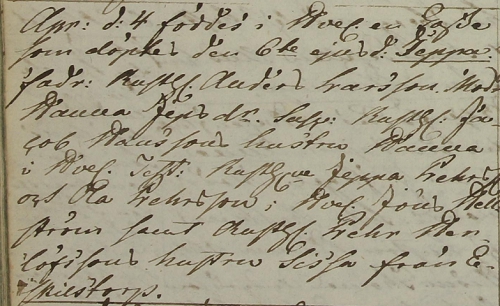 Apr: d: 4 föddes i Hvel. en Gosse
som döptes den 6te ejusd: Jeppa.
fadr: Rustgl. Anders Larsson. Modr
Hanna Jöns dr. Susc: Rustgl: Ja-
cob Hanssons hustru Hanna
i Hvel. Test: Rustgl. Jeppa Pehrss.
och Ola Pehrsson i Hvel. Jöns Hell-
ström samt Rustgl. Pehr Ber-
lofssons hustru Sissa från E-
skilstorp.